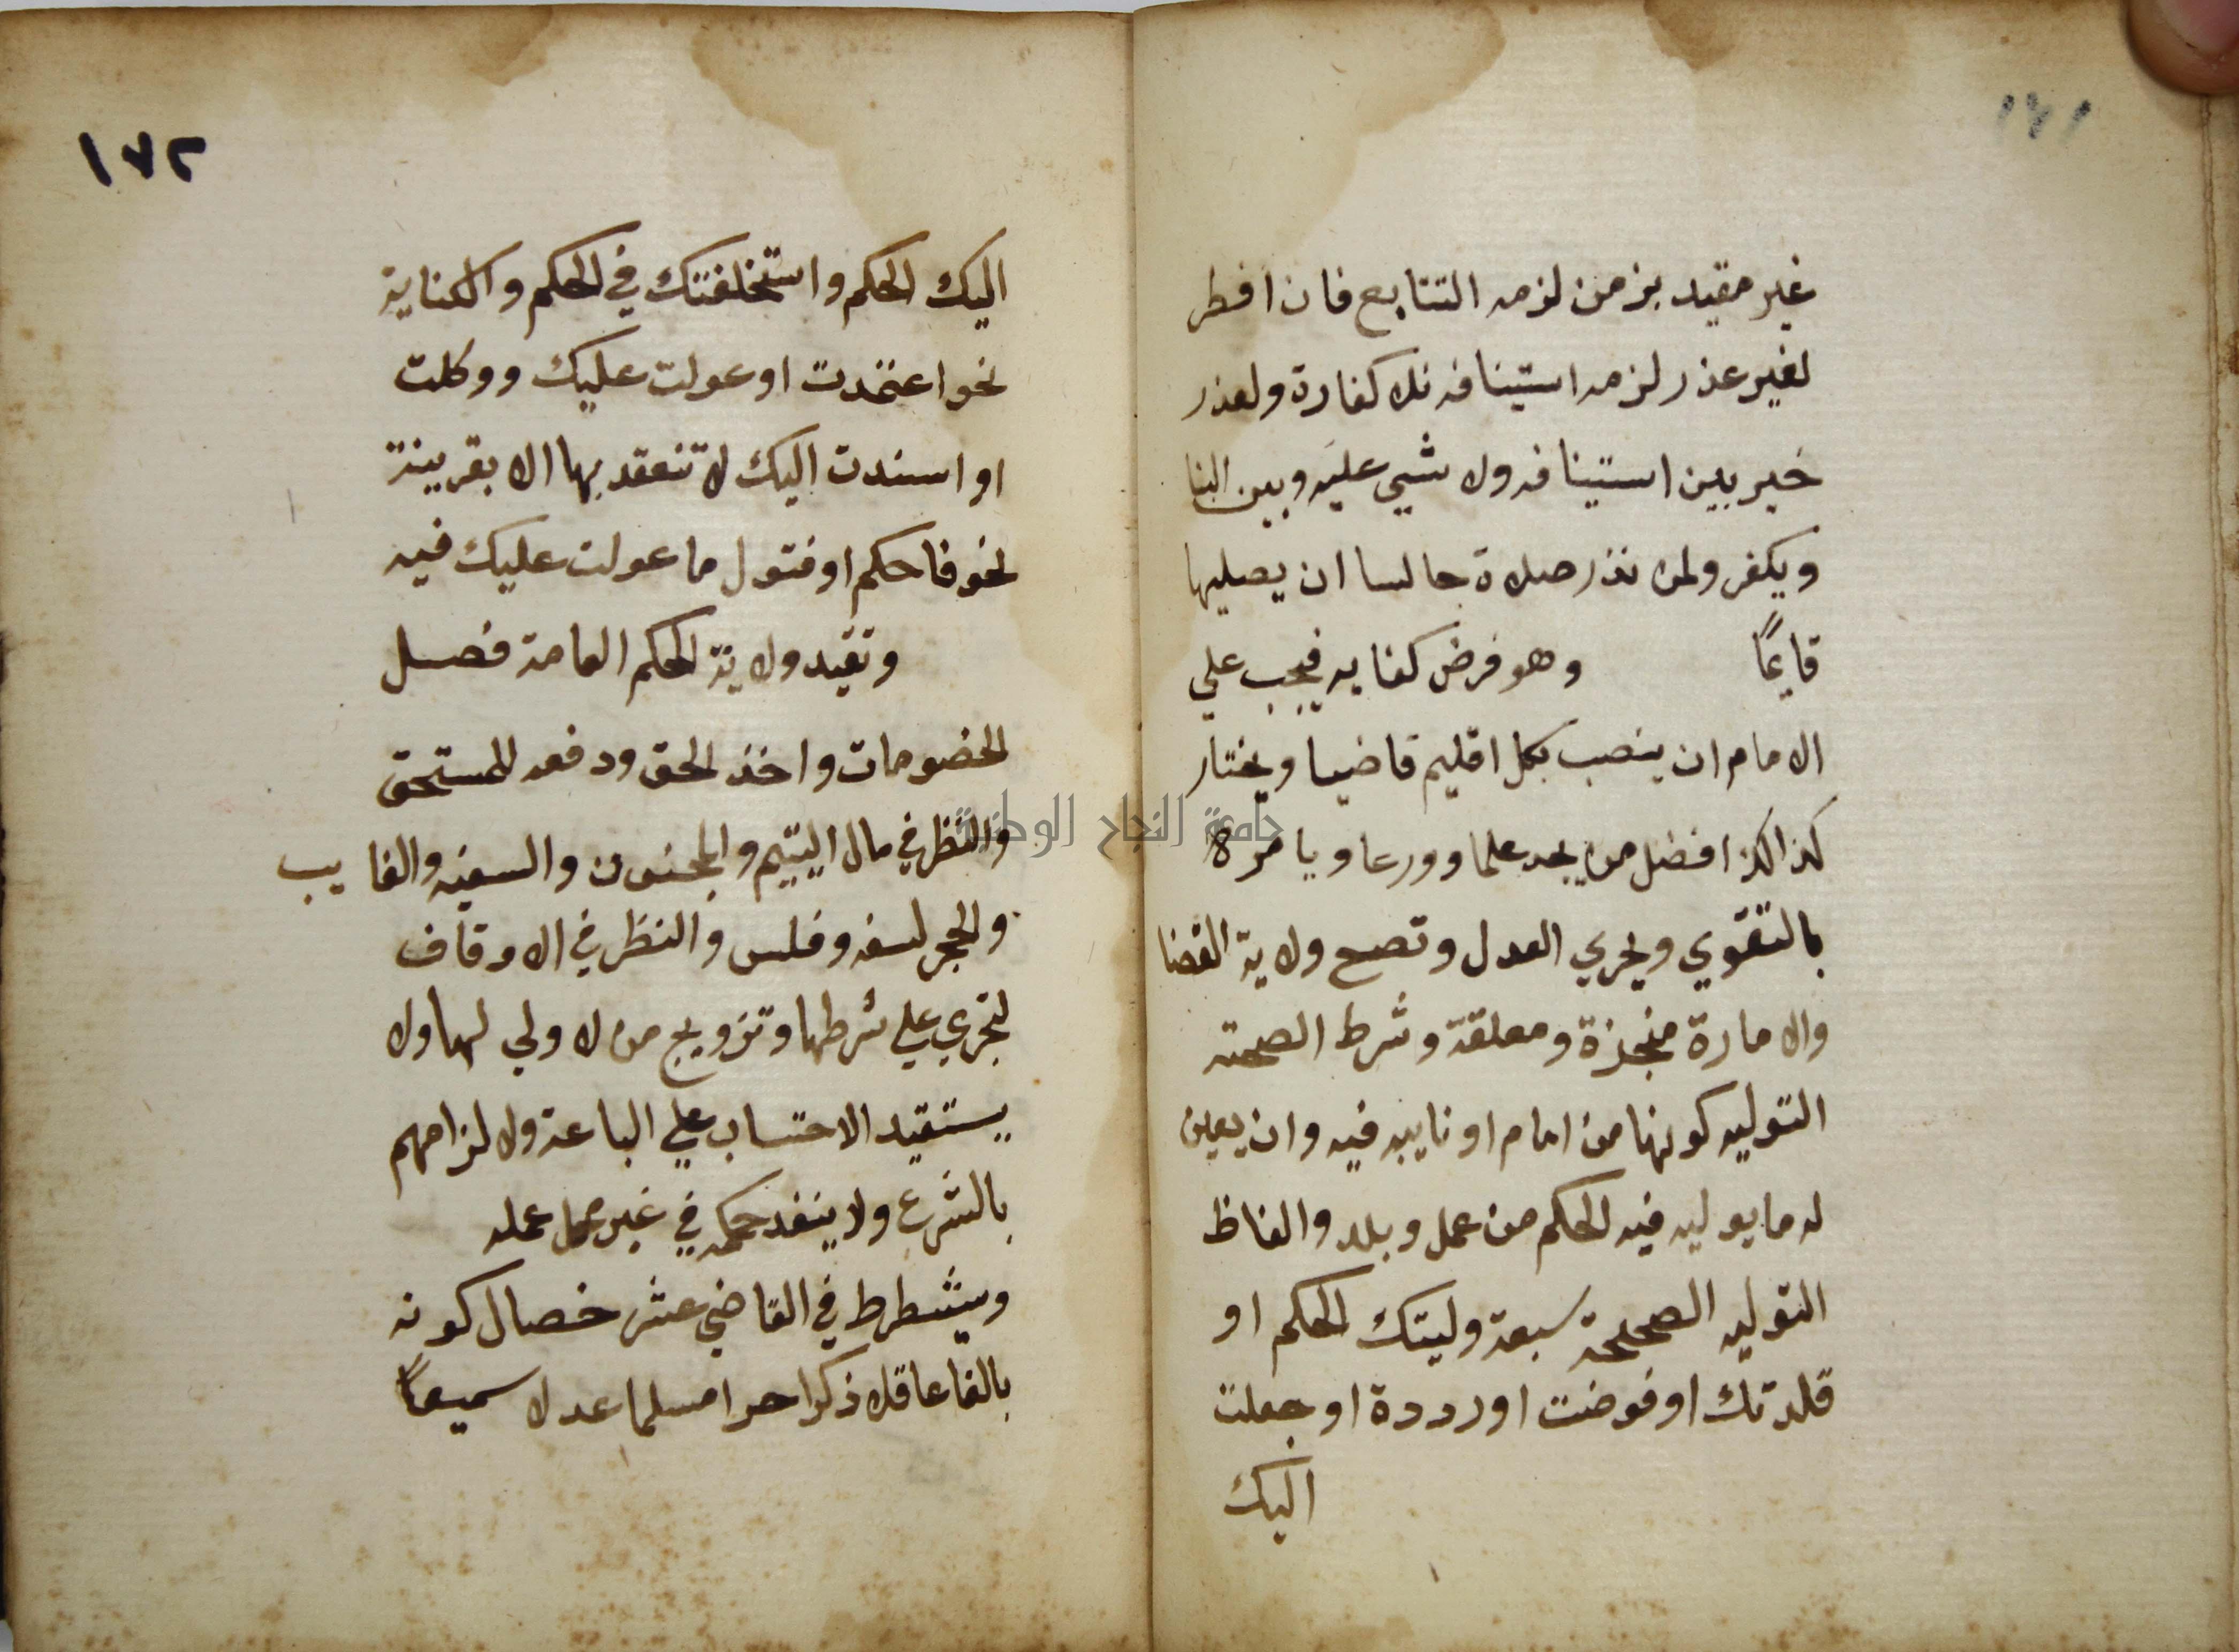 ١٧١
غير مقيد بزمن لزمه التتابع فان افطر
لغير عذر لزمه استينافه بلا كفارة ولعذر
خير بين استينافه ولا شي عليه وبين البنا
ويكفر ولمن نذر صلاة جالسا ان يصليها
قايمًا وهو فرض كفايه فيجب علي
الامام ان ينصب بكل اقليم قاضيا ويختار
لذالك افضل من يجد علما وورعا ويامره
بالتقوي وتحري العدل وتصح ولاية القضا
والامارة منجزة ومعلقة وشرط الصحته
التوليه كونها من امام او نايبه فيه وان يعين
له ما يوليه فيه الحكم من عمل وبلد والفاظ
التوليه الصحيحة سبعة وليتك الحكم او
قلدتك او فوضت اورددة او جعلت
اليك
١٧٢
اليك الحكم واستخلفتك في الحكم والكناية
نحو اعتمدت او عولت عليك ووكلت
او اسندت اليك لا تنعقد بها الا بقرينة
نحو فاحكم او فتول ما عولت عليك فيه
وتفيد ولاية الحكم العامة فصل
الخصومات واخذ الحق ودفعه للمستحق
والنظر في مال اليتيم والمجنون والسفيه والغايب
والحجر لسفه وفلس والنظر في الاوقاف
لتجري علي شرطها وتزويج من لا ولي لها ولا
يستفيد الاحتساب علي الباعة ولا لزامهم
بالشرع ولا ينفد حكمه في غير محل عمله
ويشطرط في القاضي عشر خصال كونه
بالغا عاقلا ذكرا حرا مسلما عدلا سميعًا
جامعة النجاح الوطنية